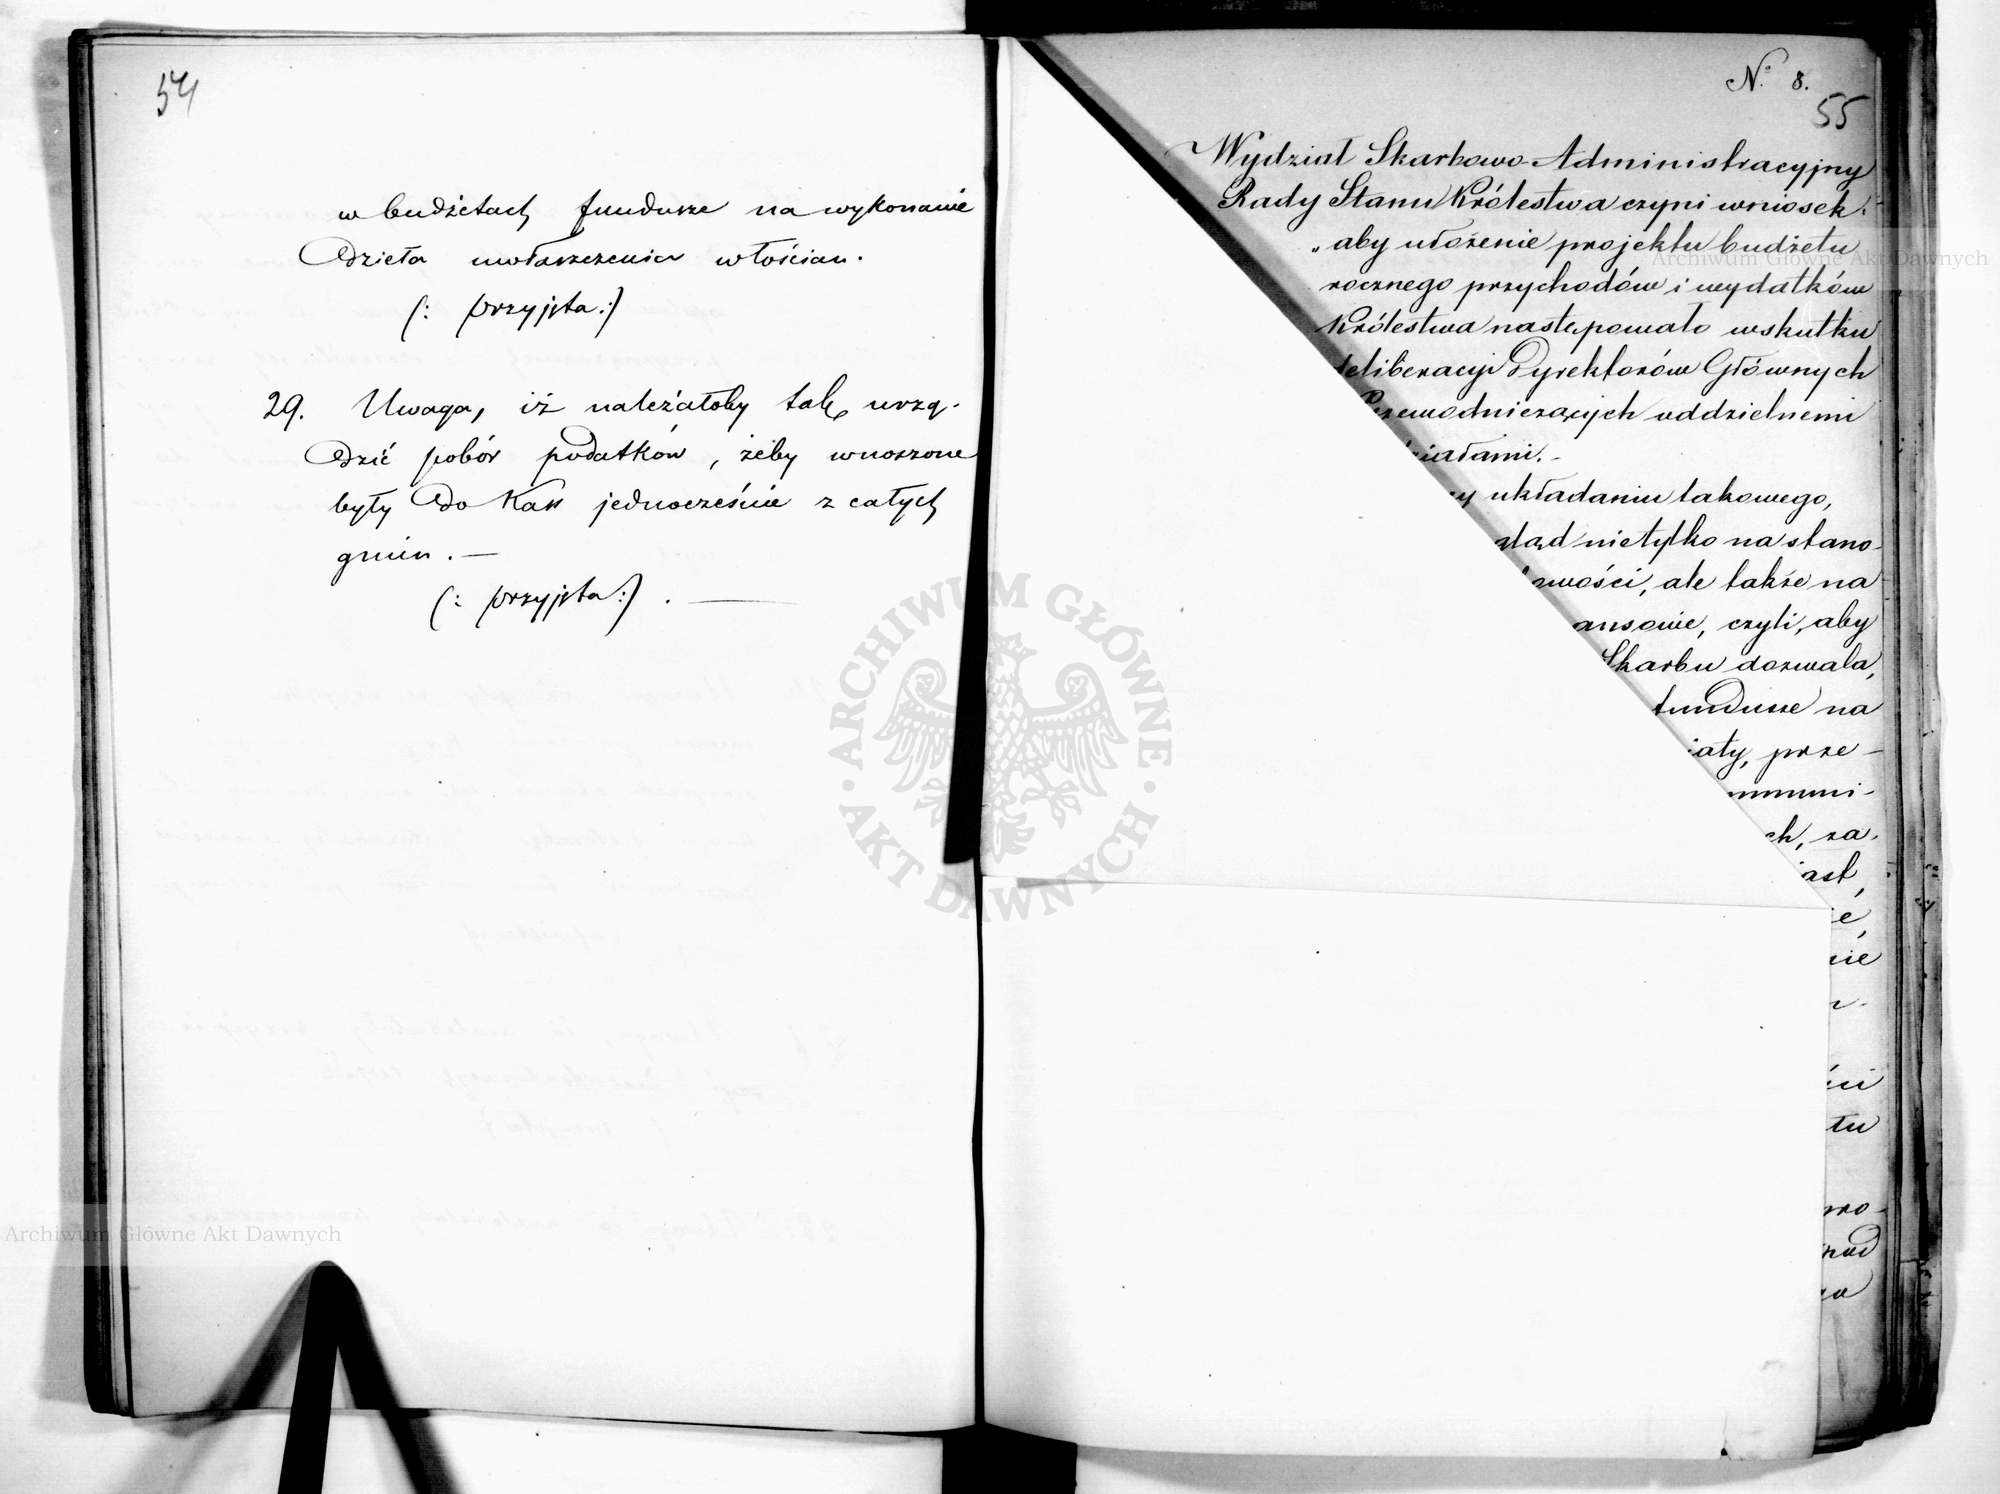 54
w budżetach fundusze na wykonanie
dzieła uwłaszczenia włościan.
(: przyjęta :)
29. Uwaga, iż należałoby tak urzą-
dzić pobór podatków, żeby wnoszone
były do Kass jednocześnie z całych
gmin. —
(: przyjęta :) . —
No 8.
55
Wydział Skarbowo-Administracyjny
Rady Stanu Królestwa czyni wniosek:
„aby ułożenie projektu budżetu
rocznego przychodów i wydatków
Królestwa następowało wskutku
deliberacyi Dyrektorów Głównych
Przewodniczących oddzielnemi
iałami. -
y układaniu takowego,
gląd nietylko na stano-
wości, ale także na
ansowie, czyli, aby
Skarbu dozwala,
fundusze na
iały, prze-
mmuni-
ch, za-
iast,
é,
nie
ści
tu
pro-
rzód
go
ARCHIWUM GŁÓWNE AKT DAWNYCH
Archiwum Główne Akt Dawnych
Archiwum Główne Akt Dawnych